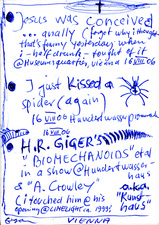 Jesus was conceived
... anally (forget why i thought
that's funny yesterday when
i-half-drunk-thought of it
@Museumsquartier, Vienna 16 VIII 06
I just kissed a
spider (again)
16 VIII 06 Hundertwasser
H.R. GIGER'S
"BIOMECHANOIDS" et al
in a show @ Hundertwasser-
haus
& "A. Crowley"
a.k.a.
"Kunst
haus"
(i touched him @ his
opening @ LIMELIGHT ca. 1993)
16 VIII 06
VIENNA